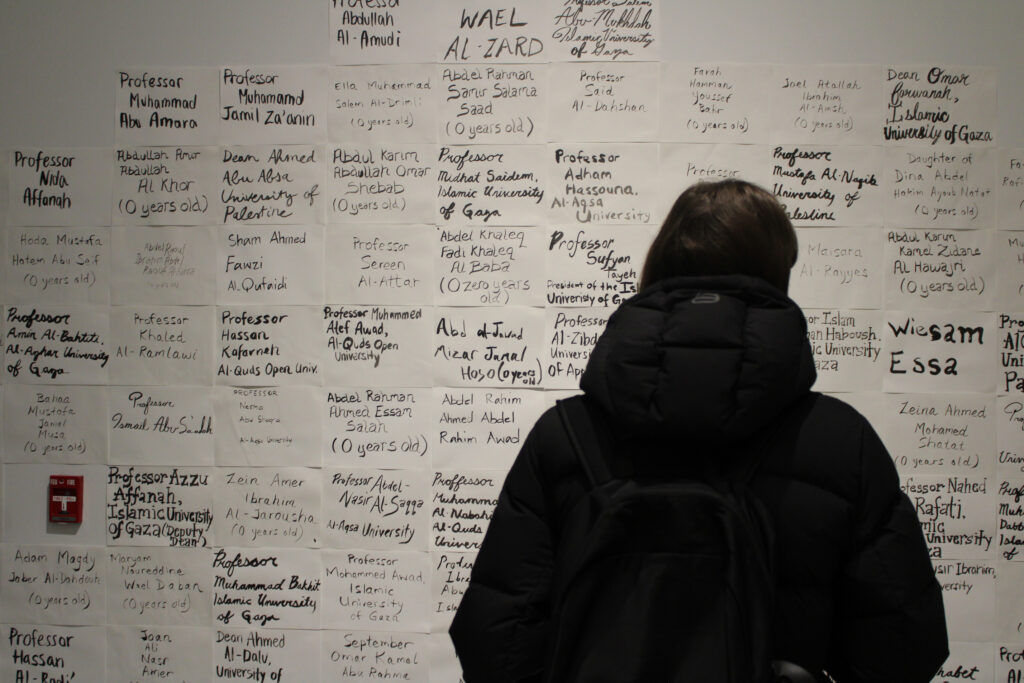 Professor
Abdullah
Al-Amudi
WAEL
AL-ZARD
Professor Salem
Abu-Mukhdah
Islamic University
of Gaza
Professor
Muhammad
Abu Amara
Professor
Muhamamd
Jamil Za'anin
Ella Muhammad
Salem Al-Drimli
(0 years old)
Abdel Rahman
Samir Salama
Saad
(0 years old)
Professor
Said
Al-Dahshan
Farah
Hamman
Youssef
Bahr
(0 years old)
Joel Atallah
Ibrahim
Al-Amsh
(0 years old)
Dean Omar
Forwanah,
Islamic
University of Gaza
Professor
Nida
Affanah
Abdullah Amr
Abdullah
Al Khor
(0 years old)
Dean Ahmed
Abu Absa
University of
Palestine
Abdul Karim
Abdullah Omar
Shebab
(0 years old)
Professor
Midhat Saidem,
Islamic University
of Gaza
Professor
Adham
Hassouna,
Al-Aqsa
University
Professor
Professor
Mustafa Al-Naqib
University of
Palestine
Daughter of
Diria Abdel
Hakim Ayoub Natat
(0 years old)
Hoda Mustafa
Hatem Abu Saif
(0 years old)
Sham Ahmed
Fawzi
Al-Qutaidi
Professor
Sereen
Al-Attar
Abdel Khaleq
Fadi Khaleq
Al Baba
(0 zero years
old)
Professor
Sufyan
Tayeh
President of the Isl
University of G
Maisara
Al-Rayyes
Abdul Karim
Kamel Zidane
Al Hawajri
(0 years old)
Professor
Amin Al-Bahtiti,
Al-Azhar University
of Gaza
Professor
Khaled
Al-Ramlawi
Professor
Hassan
Kafarneh
Al-Quds Open Univ.
Professor Muhammed
Alef Awad,
Al-Quds Open
University
Abd al-Javad
Mizar Jamal
Hoso (0 years
old)
Professor
Al-Zibd
Universi
of App
or Islam
an Haboush,
ic University
aza
Wiesam
Essa
Bahaa
Mustafa
Jamal
Musa
(0 years old)
Professor
Ismail Abu-Saadah
PROFESSOR
Al-Aqsa University
Abdel Rahman
Ahmed Essam
Salah
(0 years old)
Abdel Rahim
Ahmed Abdel
Rahim Awad
Zeina Ahmed
Mohamed
Shatat
(0 years old)
Professor Azzu
Affanah,
Islamic University
of Gaza (Deputy
Dean)
Zein Amer
Ibrahim
Al-Jarousha
(0 years old)
Professor Abdel-
Nasir Al-Saqqa
Al-Aqsa University
Proffessor
Muhamma
Al-Nabah
Al-Quds
Univers
ofessor Nahed
Rafati.
mic
University
aza
Adam Magdy
Jaber Al-Dahdouh
(0 years old)
Maryam
Noureddine
Wael Daban
(0 years old)
Professor
Muhammad Bakhit
Islamic University
of Gaza
Professor
Mohammed Awad,
Islamic
University
of Gaza
Profes
Ibra
Abu
Isla
sir Ibrahim,
ersity
Professor
Hassan
Al-Radi'
Joan
Ali
Nasr
Amer
Dean Ahmed
Al-Dalu,
University of
September
Omar Kamal
Abu Rahma
habet